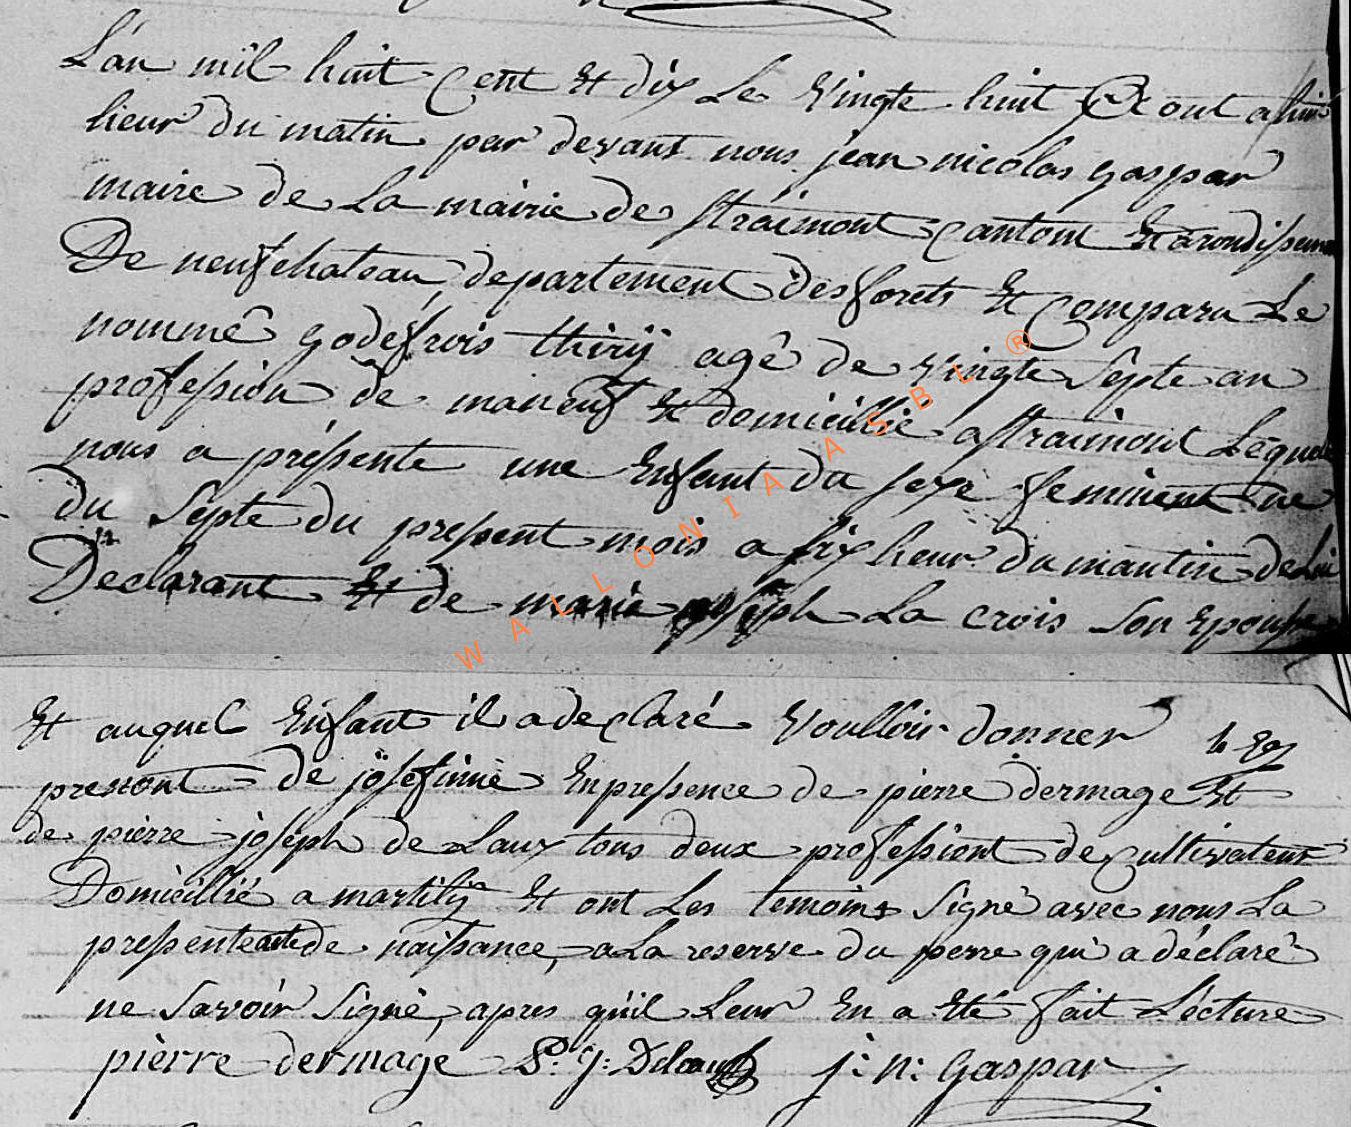 L'an mil huit cent et dix Le Vingte huit out a huit
heur du matin par devant nous jean nicolas gaspar
maire de La mairie de straimont cantont Et arondissemen
De neufchateau departement des forets Et Comparu Le
nommé godefrois thirÿ agé de vingte Septe an
profession de maneuf et domicillié a straimont Lequel
nous a présente une Enfant du sexe feminent né
du Septe du present mois a six heur du mantin de Lui
Declarant Et de marie joseph La crois Son Epouse
Et auquel Enfant il a declaré Voullois donner
prenont de jósefinne En presence de pierre dermage Et
de pierre joseph de Laux tous deux professiont de cultivateur
Domicillié a martilÿ Et ont Les temoins Signé avec nous La
presente acte de naissance, a La reserve du perre qui a déclaré
ne Savoir Signé, apres qu'il Leur En a Eté fait Lécture
pierre dermage P. J: Delaux j: n: gaspar
WALLONIA ASBL ®